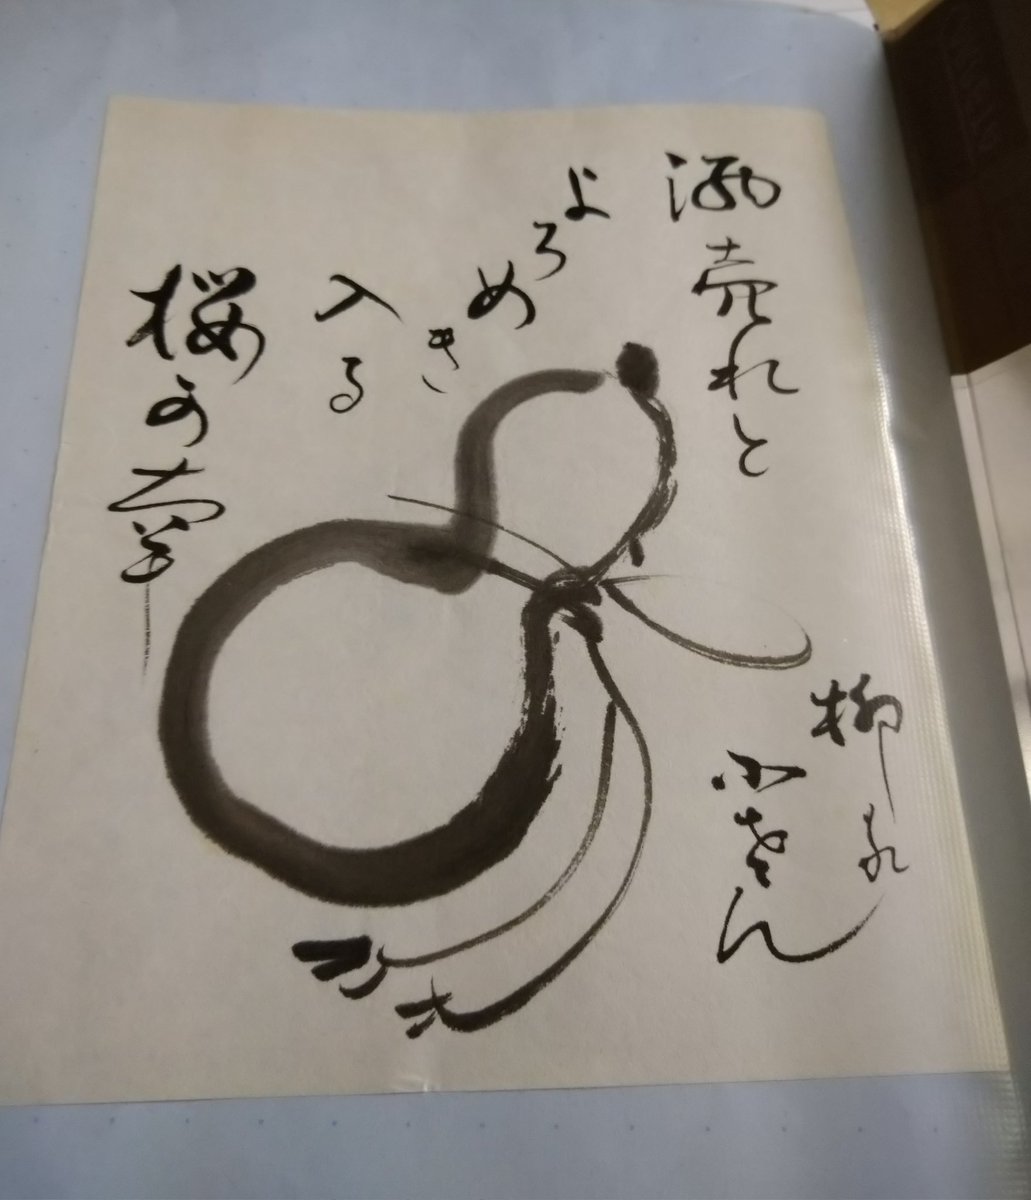 酒売れと
よろめき
入る
桜可奈
柳家
小さん